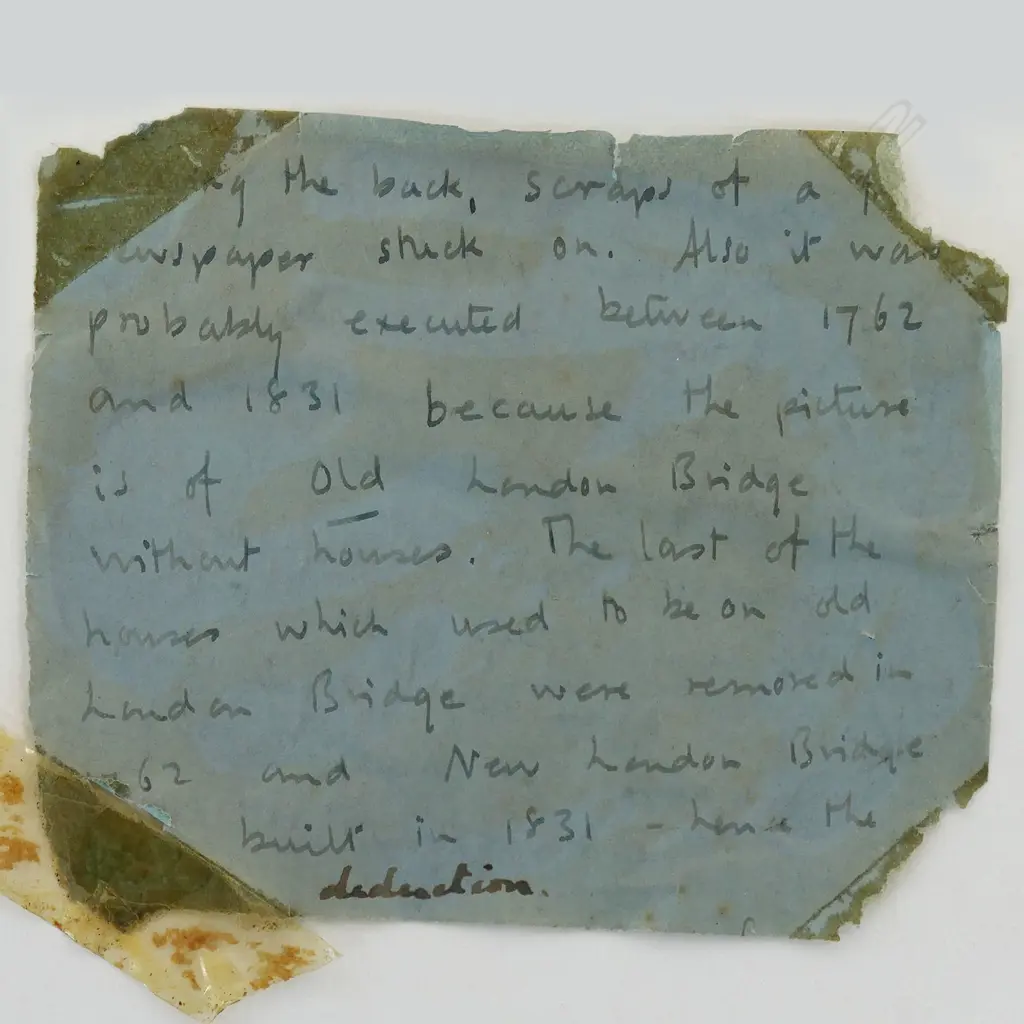 the back, scraps of a
newspaper stuck on. Also it was
probably executed between 1762
and 1831 because the picture
is of Old London Bridge
without houses. The last of the
houses which used to be on old
London Bridge were removed in
62 and New London Bridge
built in 1831 - hence the
deduction.